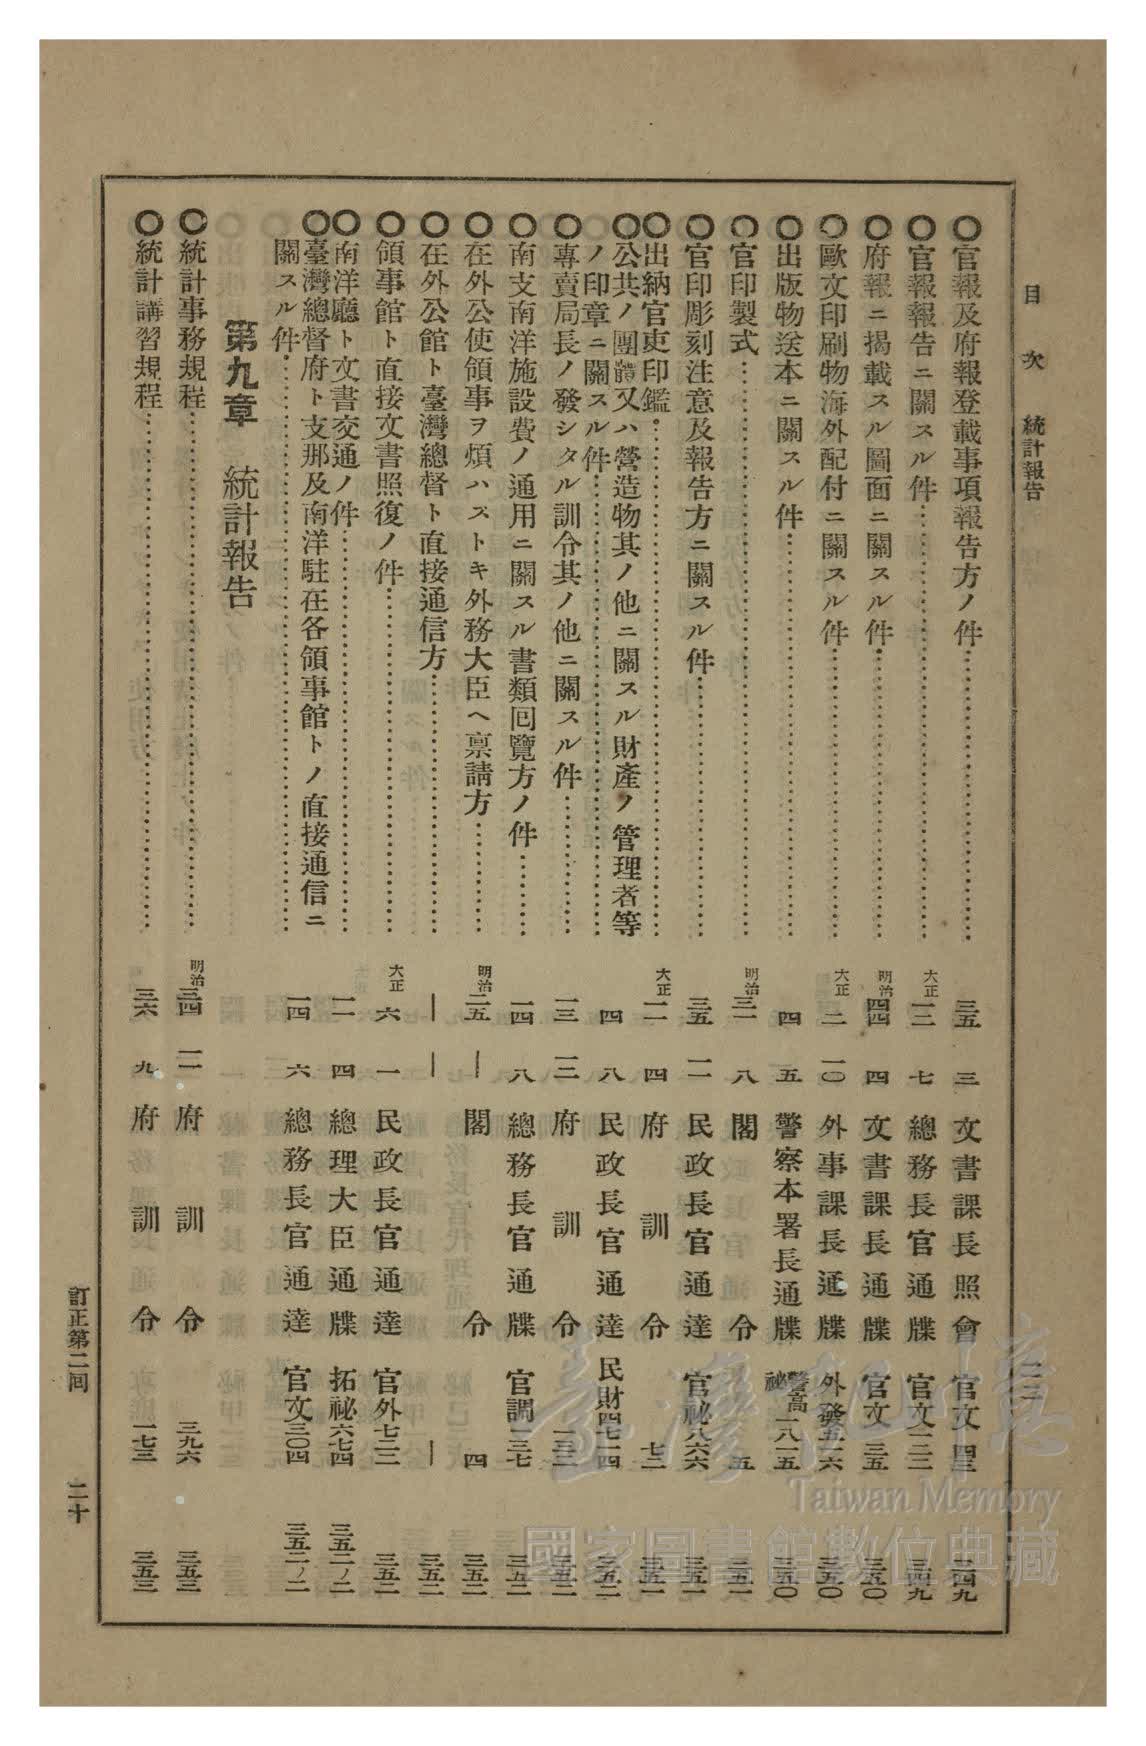 目次　統計報告
二二
○官報及府報登載事項報告方ノ件……三五　三　文書課長照會　官文四三　三四九
○官報報告ニ關スル件……大正一二　七　總務長官通牒　官文一二二　三四九
○府報ニ揭載スル圖面ニ關スル件……明治四四　四　文書課長通牒　官文三五　三五〇
○歐文印刷物海外配付ニ關スル件……大正二　一〇　外事課長通牒　外發五一六　三五〇
○出版物送本ニ關スル件……四　五　警察本署長通牒　警高秘一八一五　三五〇
○官印製式……明治三一　八　閣令　五　三五一
○官印彫刻注意及報告方ニ關スル件……三五　一一　民政長官通達　官秘八六六　三五一
○出納官吏印鑑……大正一一　四　府訓令　七三　三五一
○公共ノ團體又ハ營造物其ノ他ニ關スル財產ノ管理者等
ノ印章ニ關スル件……四　八　民政長官通達　民財四七一四　三五二
○專賣局長ノ發シタル訓令其ノ他ニ關スル件……一三　一二　府訓令　一三三　三五二
○南支南洋施設費ノ通用ニ關スル書類回覽方ノ件……一四　八　總務長官通牒　官調一三七　三五二
○在外公使領事ヲ煩ハストキ外務大臣ヘ稟請方……明治二五　｜　閣令　四　三五二
○在外公館ト臺灣總督ト直接通信方……｜　｜　｜　三五二
○領事館ト直接文書照復ノ件……大正六　一　民政長官通達　官外七三一　三五二
○南洋廳ト文書交通ノ件……一一　四　總理大臣通牒　拓祕六七四　三五二ノ二
○臺灣總督府ト支那及南洋駐在各領事館トノ直接通信ニ
關スル件……一四　六　總務長官通達　官文三〇四　三五二ノ二
第九章　統計報告
○統計事務規程……明治三四　一一　府訓令　三九六　三五三
○統計講習規程……三六　九　府訓令　一七三　三五三
訂正第二回　二十
臺灣記憶
Taiwan Memory
國家圖書館數位典藏